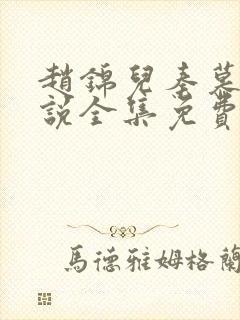 趙錦兒秦慕
說全集免費
馬德雅姆格蘭